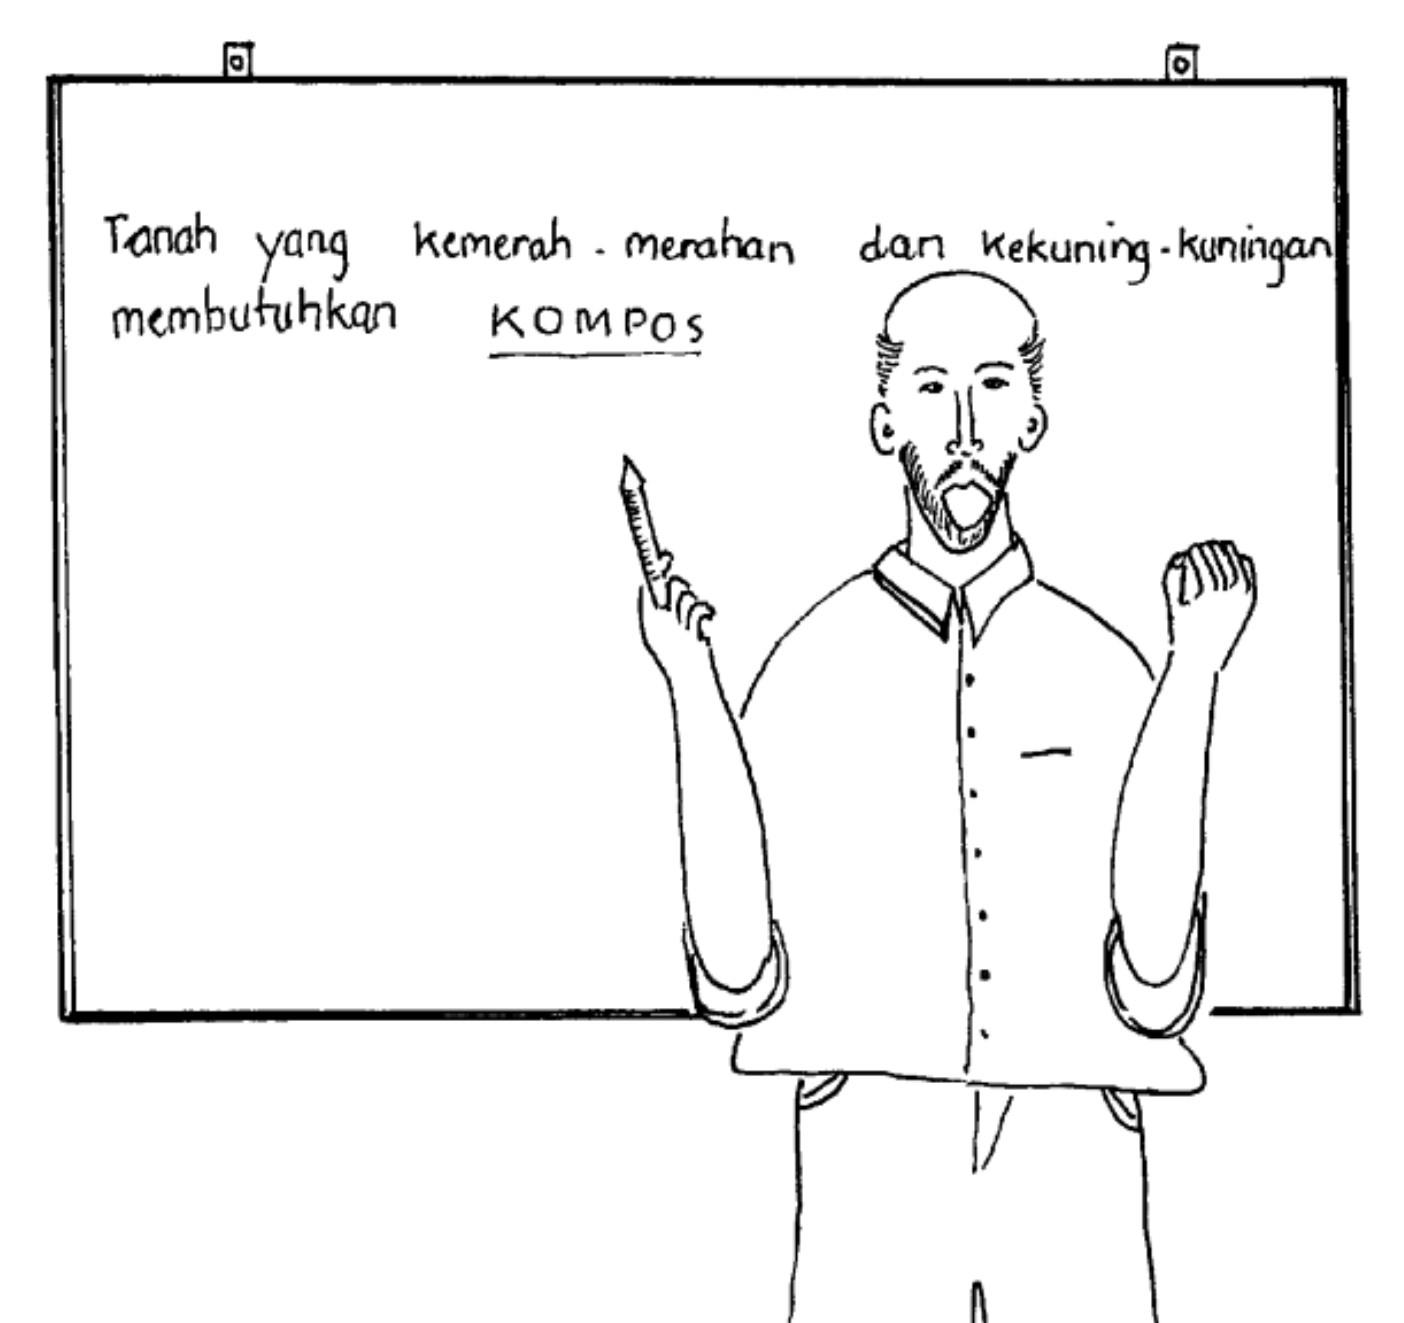 Tanah yang kemerah-merahan dan kekuning-kuningan
membutuhkan KOMPOS